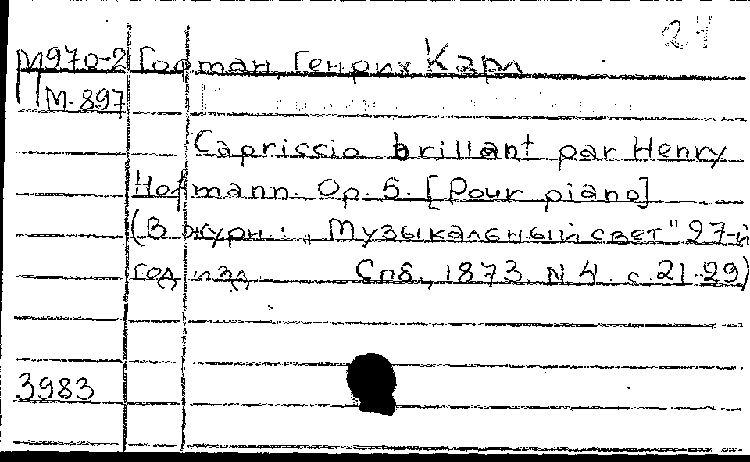 24
М970-2 Гофман, Генрих Карл
М.897
Capriccio brillant par Henry
Hofmann. Op. 5. [Pour piano]
(В журн.: „Музыкальный свет" 27-й
год изд. Спб., 1873. N.4. с.21-29)
3983